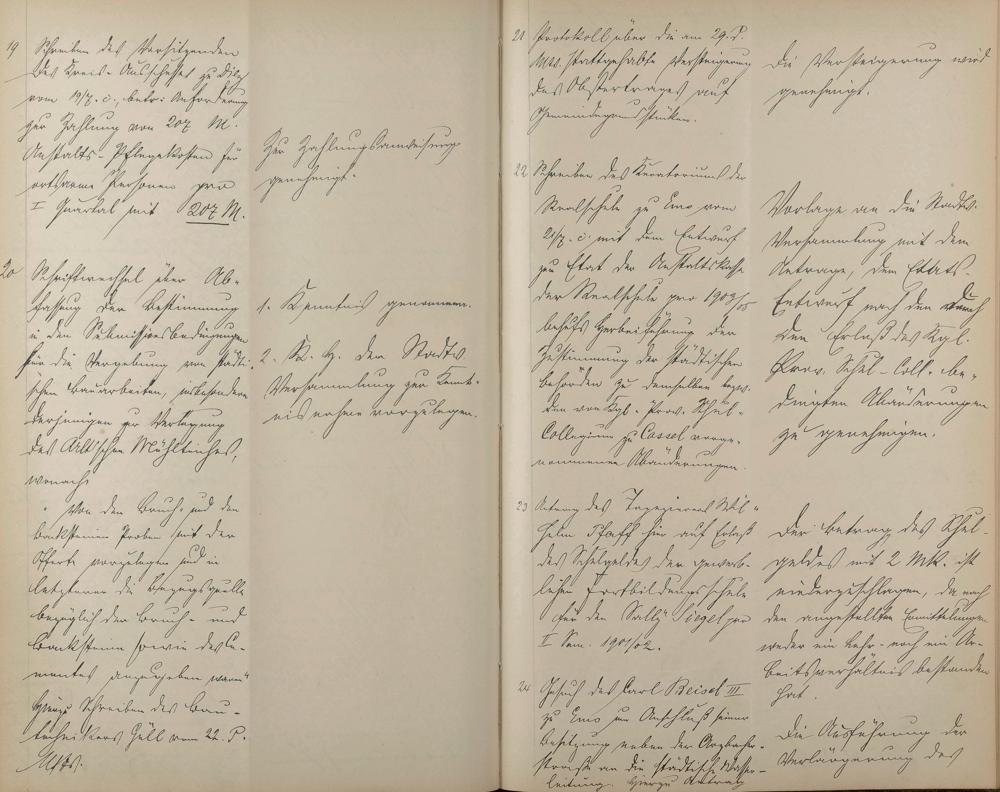 19 Schreiben des Vorsitzenden
des Kreis-Ausschusses zu Diez
vom 19/7. c., betr: Anforderung
zur Zahlung von 207 M.
Anstalts-Pflegekosten für
ortsarme Personen pro
I Quartal mit 207 M.
Zur Zahlungsanweisung
genehmigt.
20 Schriftwechsel über Ab-
fassung der Bestimmung
in den Submissionsbedingungen
für die Vergebung von städti-
schen Bauarbeiten, insbesondere
derjenigen zur Verlegung
des Arll'schen Mühlteiches,
wonach
"Von den Bruch- und den
Backsteinen Proben mit der
Offerte vorzulegen und in
letzterer die Bezugsquelle
bezüglich der Bruch- und
Backsteine sowie des Ce-
mentes anzugeben waren"
Hierzu Schreiben des Bau-
technikers Güll vom 22. d.
Mts.
1. Kenntnis genommen.
2. N. H. der Stadtv.
Versammlung zur Kennt-
nisnahme vorzulegen.
21 Protokoll über die am 29. d.
Mts. stattgehabte Versteigerung
des Obstertrages auf
Gemeindegrundstücken.
Die Versteigerung wird
genehmigt.
22 Schreiben des Kuratoriums der
Realschule zu Ems vom
21/7. c. mit dem Entwurf
zu Etat der Anstaltskasse
der Realschule pro
behufs Herbeiführung der
Zustimmung der städtischen
Behörden zu demselben bezw.
den von Kgl. Prov. Schul-
Collegium zu Cassel vorge-
nommenen Abänderungen.
Vorlage an die Stadtv.
Versammlung mit dem
Antrage, den Etats-
Entwurf nach den durch
den Erlaß des Kgl.
Prov. Schul-Coll. be-
dingten Abänderungen
zu genehmigen.
23 Antrag des Tapezierers Wil-
helm Pfaff hier auf Erlaß
des Schulgeldes der gewerb-
lichen Fortbildungsschule
für den Sally Siegel pro
II Sem. 1901/02.
Der Betrag des Schul-
geldes mit 2 Mk. ist
niederzuschlagen, da nach
den angestellten Ermittelungen
weder ein Lehr- noch ein Ar-
beitsverhältnis bestanden
hat.
24 Gesuch des Carl Beisel III
zu Ems um Anschluß seiner
Besitzung neben der Arzbacher-
straße an die städtische Wasser-
leitung. Hierzu Antrag
Die Ausführung der
Verlängerung des